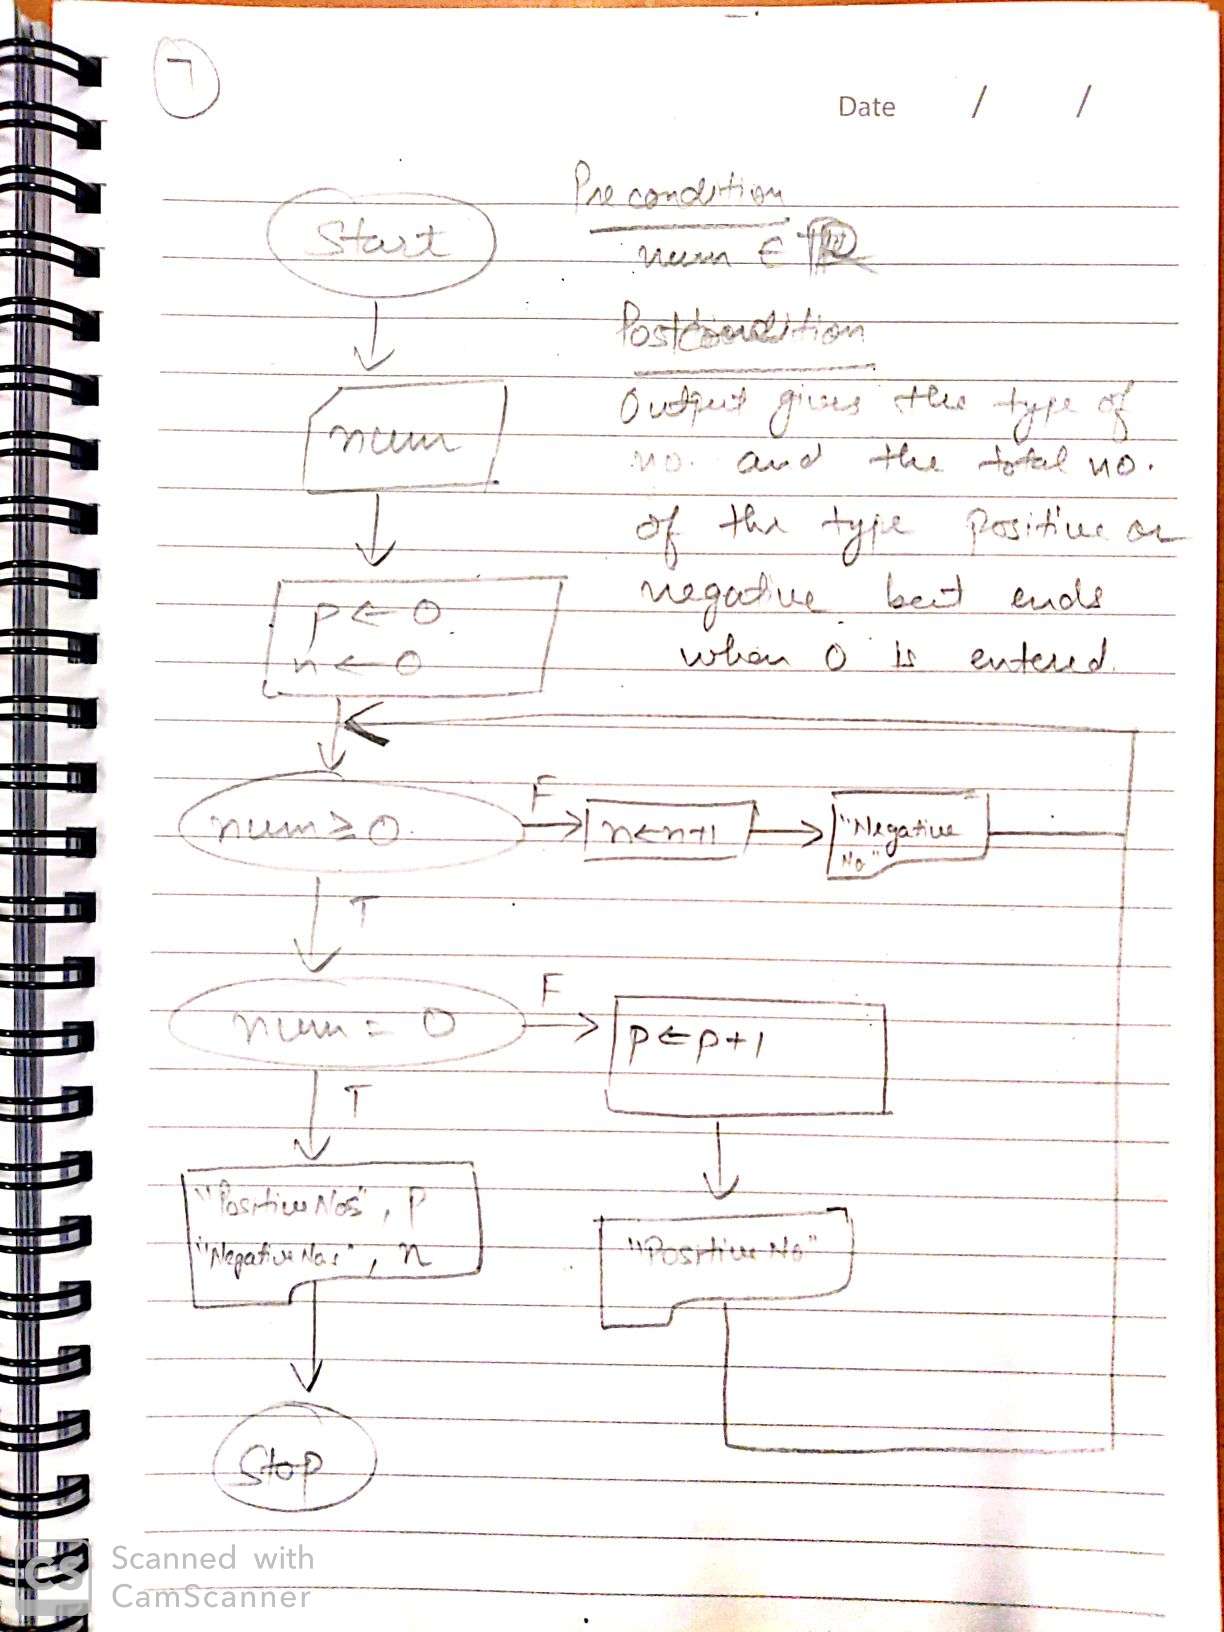 7
Date / /
Precondition
Start
num ∈ ℝ
Postcondition
num
Output gives the type of
no. and the total no.
of the type positive or
negative but ends
when 0 is entered.
p ← 0
n ← 0
num ≥ 0
F
n ← n+1
"Negative
No"
T
num = 0
F
p ← p+1
T
"Positive Nos", p
"Negative Nos", n
"Positive No"
Stop
CS
Scanned with
CamScanner